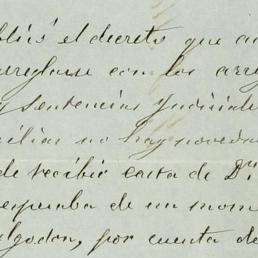 el decreto que
arreglarse con los
y sentencias judiciale
milias no hay noveda
de recibir carta de D.n
esperaba de un mom
algodon, por cuenta de